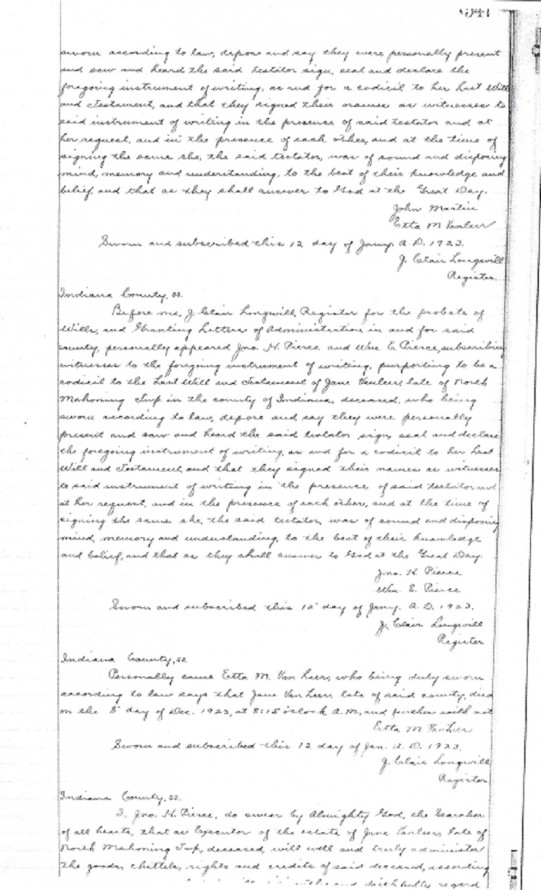 sworn according to law, depose and say they were personally present
and saw and heard the said testator sign, seal and declare the
foregoing instrument of writing, as and for a codicil to her Last Will
and Testament, and that they signed their names as witnesses to
said instrument of writing in the presence of said testator and at
her request, and in the presence of each other, and at the time of
signing the same she, the said testator, was of sound and disposing
mind, memory and understanding, to the best of their knowledge and
belief, and that as they shall answer to God at the Great Day.
John Martin
Etta M VanLeer
Sworn and subscribed this 12 day of Jany. A.D. 1923.
J. Clair Longwill
Register.
Indiana County, SS.
Before me, J. Clair Longwill, Register for the probate of
Wills, and Granting Letters of Administration in and for said
county, personally appeared Jno. H. Pierce and Wm. E. Pierce, subscribing
witnesses to the foregoing instrument of writing, purporting to be a
codicil to the Last Will and Testament of Jane Vanleer late of North
Mahoning Twp in the county of Indiana, deceased, who being
sworn according to law, depose and say they were personally
present and saw and heard the said testator sign, seal and declare
the foregoing instrument of writing, as and for a codicil to her Last
Will and Testament, and that they signed their names as witnesses
to said instrument of writing in the presence of said testator and
at her request, and in the presence of each other, and at the time of
signing the same she, the said testator, was of sound and disposing
mind, memory and understanding, to the best of their knowledge
and belief, and that as they shall answer to God at the Great Day.
Jno. H. Pierce
Wm. E. Pierce
Sworn and subscribed this 12 day of Jany. A.D. 1923.
J. Clair Longwill
Register
Indiana County, SS.
Personally came Etta M. Van Leer, who being duly sworn
according to law says that Jane Van Leer, late of said county, died
on the 8" day of Dec. 1923, at 8:15 o'clock A.M, and further saith not
Etta M. VanLeer
Sworn and subscribed this 12 day of Jan. A.D. 1923.
J. Clair Longwill
Register
Indiana County, SS.
I, Jno. H. Pierce, do swear by Almighty God, the Searcher
of all hearts, that as Executor of the estate of Jane Vanleer, late of
North Mahoning Twp, deceased, will well and truly administer
the goods, chattels, rights and credits of said deceased, according
and regard